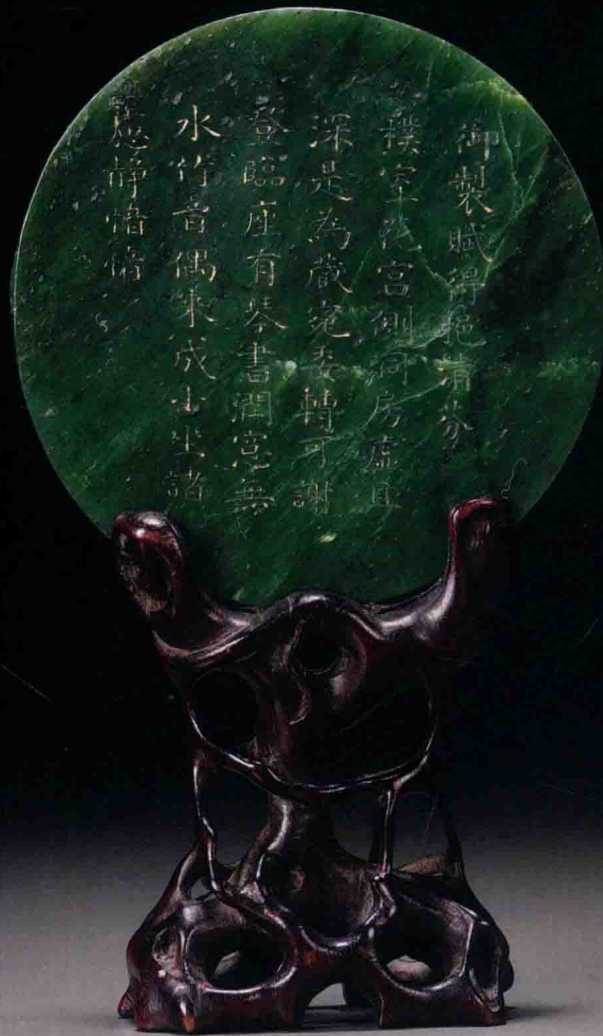 御製賦得挹清芬
樸室池宮側洞房虛且
深是為藏宛委轉可謝
登臨座有琴書潤窓無
水竹音偶來成小坐諸
慮靜愔愔